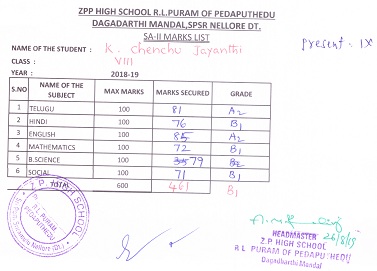 ZPP HIGH SCHOOL R.L.PURAM OF PEDAPUTHEDU
DAGADARTHI MANDAL,SPSR NELLORE DT.
SA-II MARKS LIST
NAME OF THE STUDENT : K. Chenchu Jayanthi
present - IX
CLASS : VIII
YEAR : 2018-19
S.NO NAME OF THE SUBJECT MAX MARKS MARKS SECURED GRADE
1 TELUGU 100 81 A2
2 HINDI 100 76 B1
3 ENGLISH 100 85 A2
4 MATHEMATICS 100 72 B1
5 B.SCIENCE 100 79 B2
6 SOCIAL 100 71 B1
TOTAL 600 461 B1
Z.P. HIGH SCHOOL
R.L. PURAM
PEDAPUTHEDU
Nellore (Dt.)
26/8/19
HEADMASTER
Z.P HIGH SCHOOL
R L PURAM OF PEDAPUTHEDU
Dagadharthi Mandal